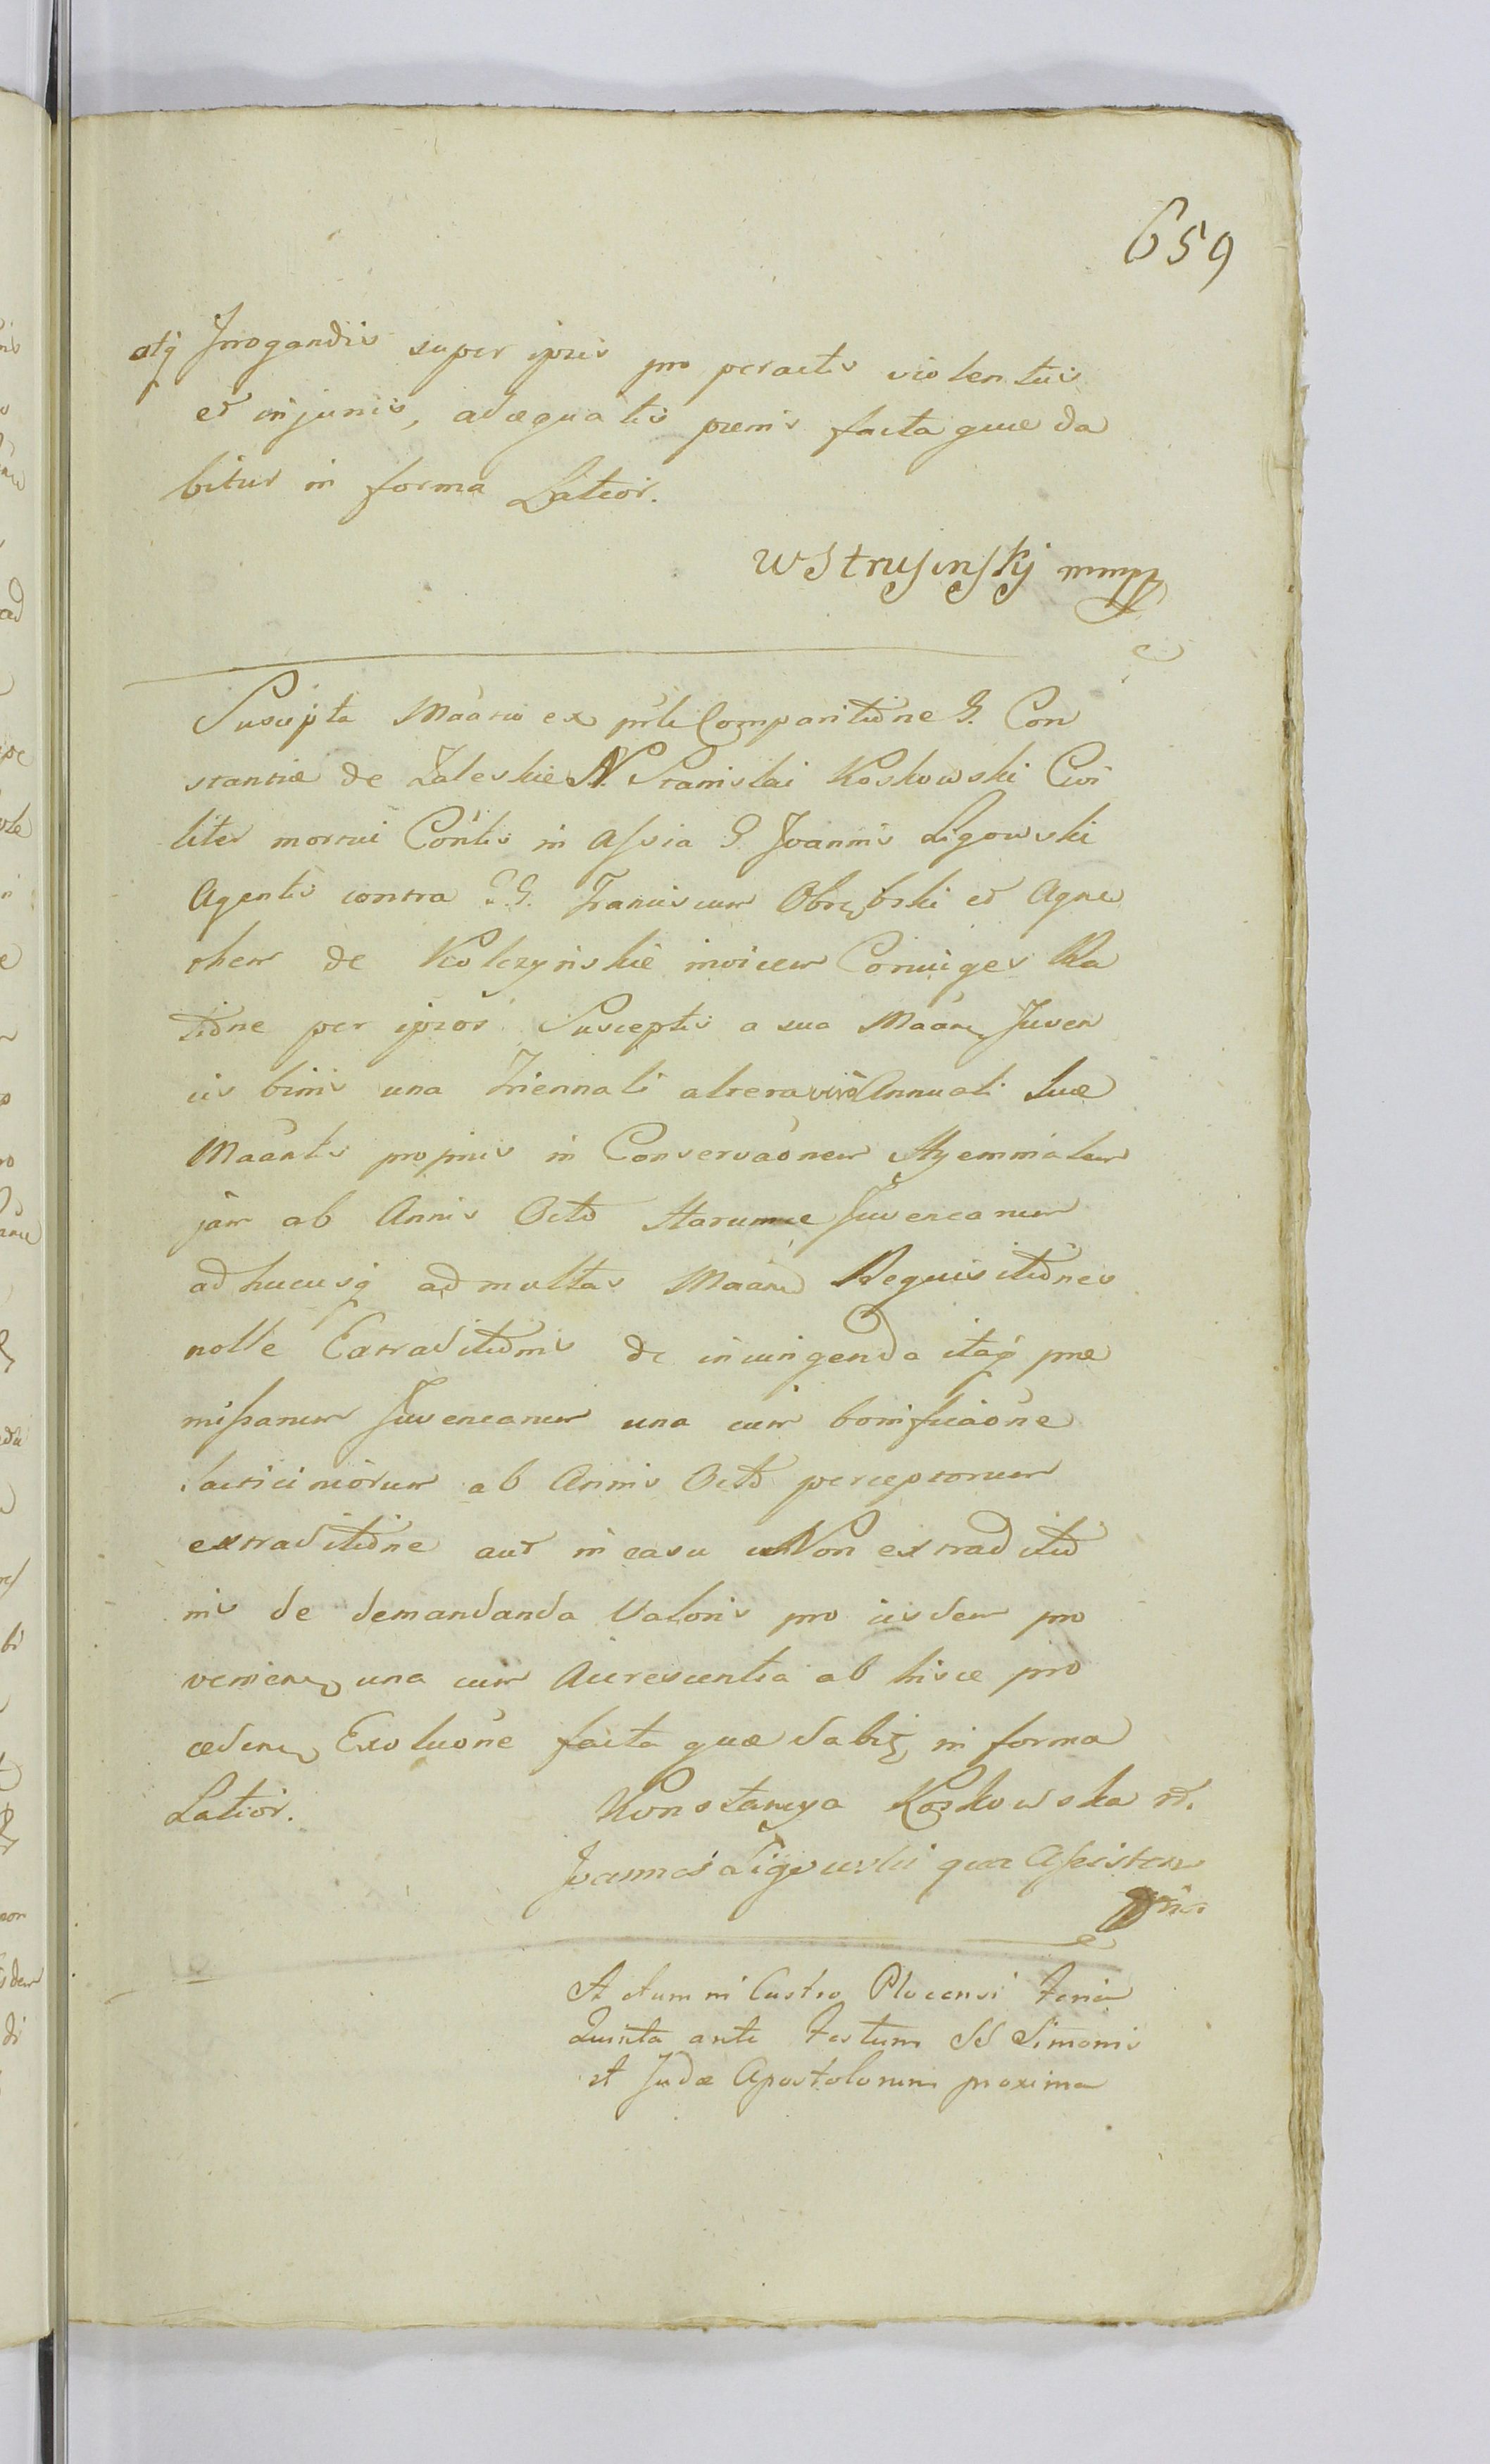 659
atq Irrogandis super ipsis pro peractis violentiis
et injuriis, adæquatis pænis facta quæ da
bitur in forma Latior.
WStrusinskj mmp
Suscipta Maãrio ex pñli Comparitiõne G. Con
stantiæ de Zaleskie N. Stanislai Koskowski Civi
liter mortui Cõntis in Assia G Joannis Ligowski
Agentis contra G.G. Franciscum Obrębski et Agne
them de Kolczynskie invicem Coniuges Ra
tiõne per ipsos Susceptis a sua Maãne Juven
cis binis una Triennali altera verò Annuali suæ
Maãntis propriis in Conservaõnem Hyemmalem
jam ab Annis Octo Harumce Juvencarum
ad hucusq ad multas Maãne Requisitiõnes
nolle Extraditiõnis de iniungenda itaq præ
missarum Juvencarum una cum bonificaõne
lacticiniorum ab Annis Octo perceptorum
extraditiõne aut in casu Non extraditiõ
nis de demandanda Valoris pro iisdem pro
venien, una cum Accrescentia ab hisce pro
ceden, Exoluõne facta quæ dabiʒ in forma
Latior.
Konstancya Koskowska
Joannes Ligowski qua Assistens
Actum in Castro Plocensi Feria
Quinta ante Festum SS Simonis
et Judæ Apostolorum proxima